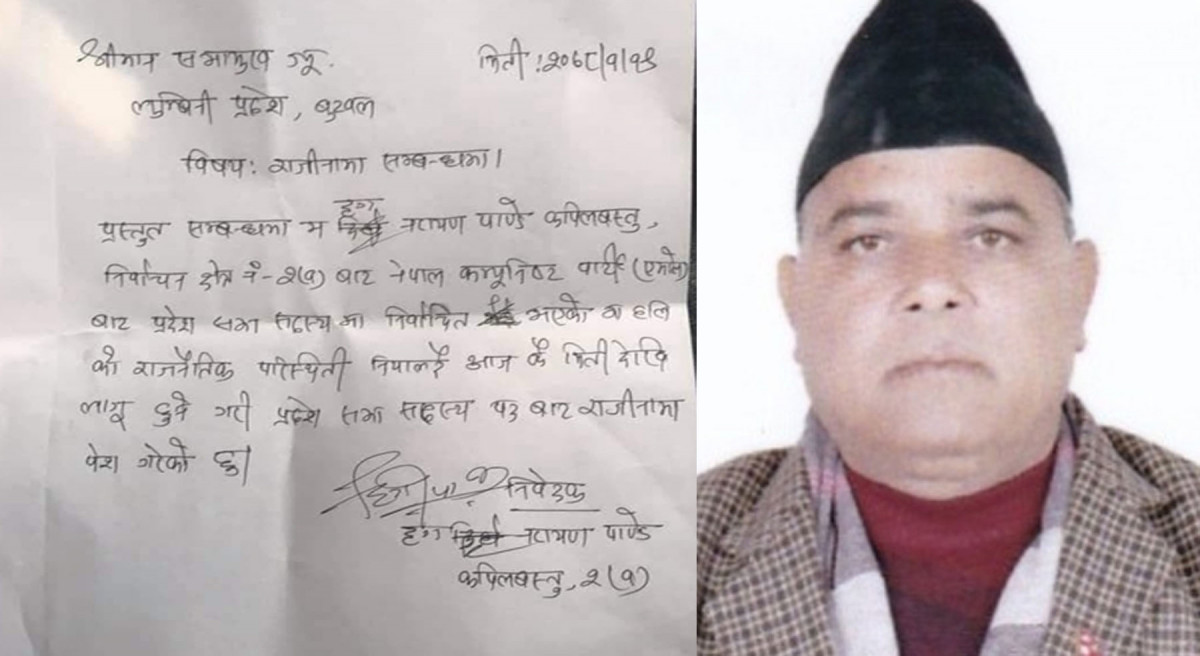 श्रीमान सभामुख ज्यू. मिती:२०७८/१/१९
लुम्बिनी प्रदेश, बुटवल
विषय: राजीनामा सम्बन्धमा।
दृग
प्रस्तुत सम्बन्धमा म नारायण पाण्डे कपिलबस्तु,
निर्वाचन क्षेत्र नं-२(१) बाट नेपाल कम्युनिष्ट पार्टी (एमाले)
बाट प्रदेश सभा सदस्य मा निर्वाचित भएको मा हालि
को राजनैतिक परिस्थिती निपालई आज कै मिती देखि
लागू हुने गरी प्रदेश सभा सदस्य पद बाट राजीनामा
पेश गरेको छु।
निवेदक
दृग नारायण पाण्डे
कपिलबस्तु, २(१)